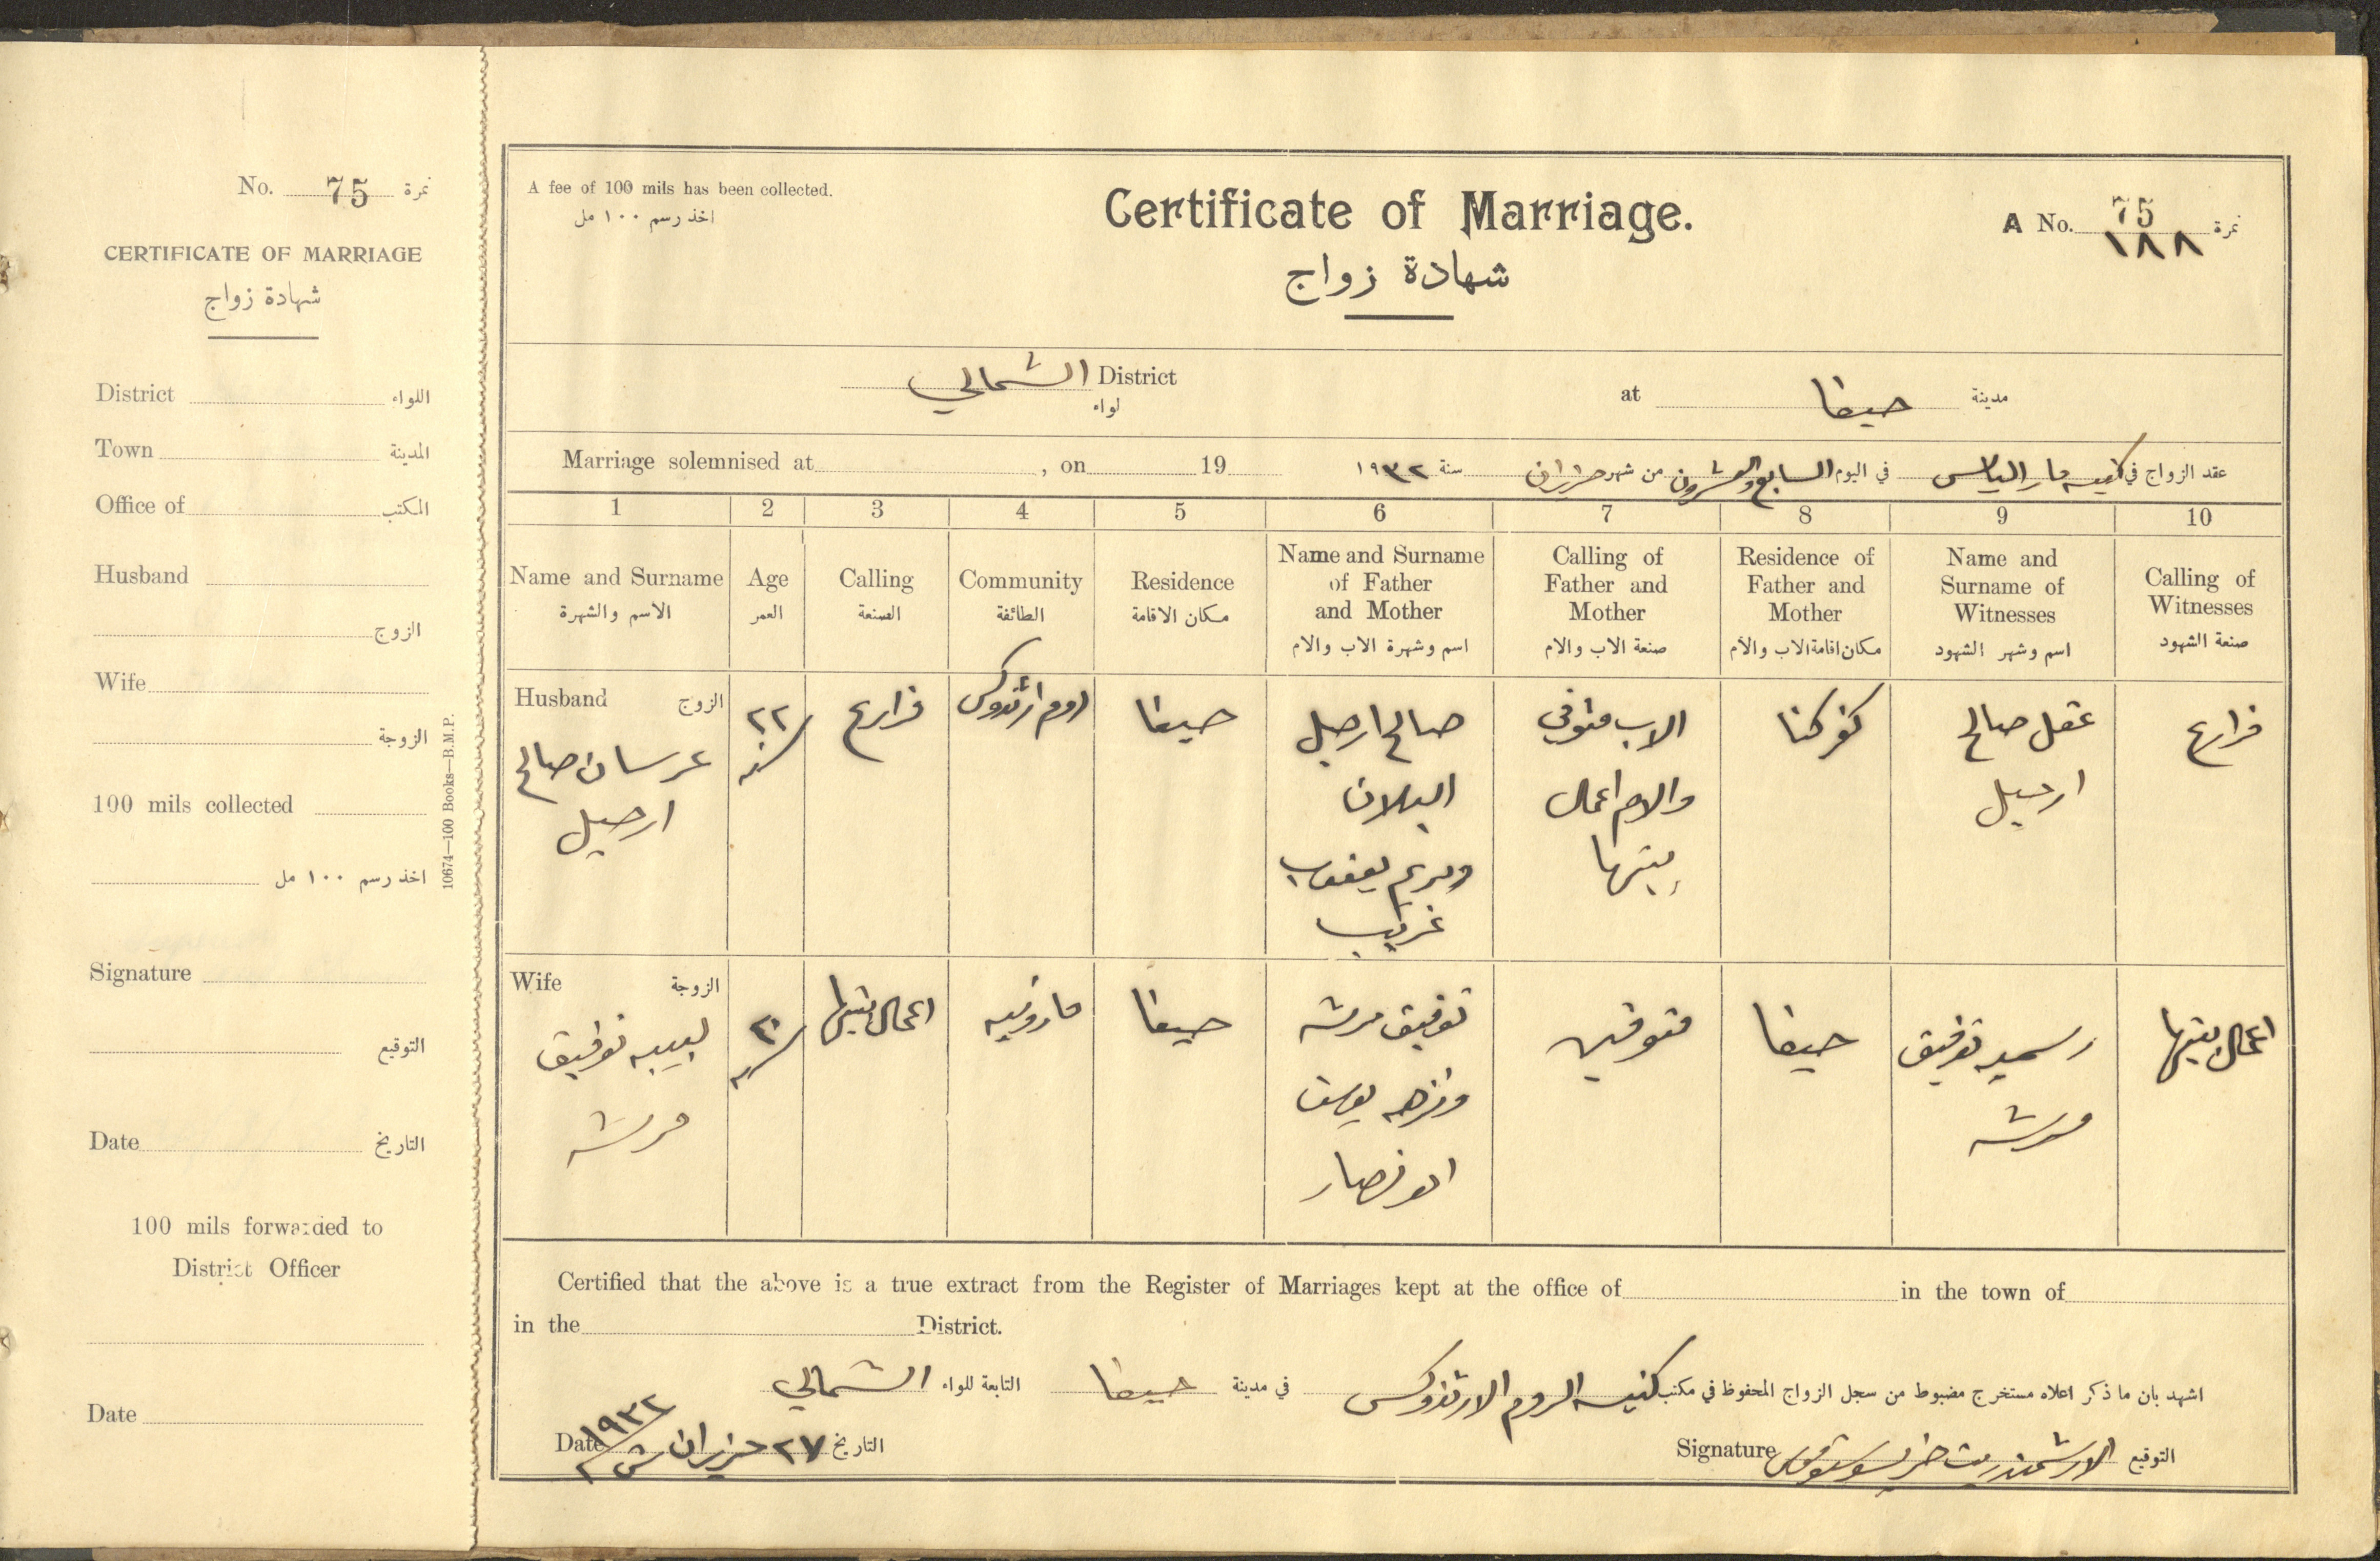 No. 75 نمرة
CERTIFICATE OF MARRIAGE
شهادة زواج
District اللواء
Town المدينة
Office of المكتب
Husband
الزوج
Wife
الزوجة
100 mils collected
اخذ رسم ١٠٠ مل
Signature
التوقيع
Date التاريخ
100 mils forwarded to
District Officer
Date
10674—100 Books—B.M.P.
A fee of 100 mils has been collected.
اخذ رسم ١٠٠ مل
Certificate of Marriage.
شهادة زواج
A No. 75 نمرة
١٨٨
الشمالي District
لواء
at حيفا مدينة
Marriage solemnised at , on 19
عقد الزواج في كنيسة مار الياس في اليوم السابع والعشرون من شهر حزيران سنة ١٩٣٢
1 2 3 4 5 6 7 8 9 10
Name and Surname
الاسم والشهرة
Age
العمر
Calling
الصنعة
Community
الطائفة
Residence
مكان الاقامة
Name and Surname
of Father
and Mother
اسم وشهرة الاب والام
Calling of
Father and
Mother
صنعة الاب والام
Residence of
Father and
Mother
مكان اقامة الاب والام
Name and
Surname of
Witnesses
اسم وشهر الشهود
Calling of
Witnesses
صنعة الشهود
Husband الزوج
عرسان صالح
ارحيل
٢٢
سنه
روم ارثدوكس
حيفا
صالح ارحيل
ومريم يعقوب
غريب
الاب متوفي
والام اعمال
بيتها
كفركنا
عقل صالح
ارحيل
Wife الزوجة
لبيبه توفيق
مرشه
سنه
اعمال بيتها
مارونيه
حيفا
توفيق مرشه
يوسف
ابو نصار
متوفين
حيفا
توفيق
مرشه
اعمال بيتها
Certified that the above is a true extract from the Register of Marriages kept at the office of in the town of
in the District.
اشهد بان ما ذكر اعلاه مستخرج مضبوط من سجل الزواج المحفوظ في مكتب كنيسة الروم الارثدوكس في مدينة حيفا التابعة للواء الشمالي
Signature الارشمندريت التوقيع
Date ٢٧ حزيران ١٩٣٢ التاريخ